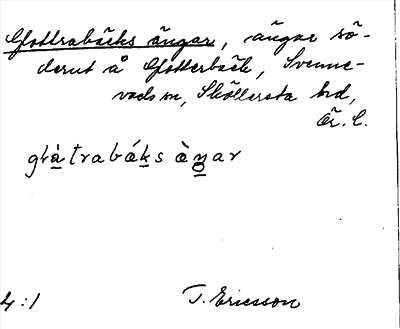 Glottrabäcks ängar, ängar sö-
derut å Glotterbäck, Svenne-
vads sn, Sköllersta hrd,
Ör. l.
glòtrabák̲s àŋar
4:1 T. Ericsson